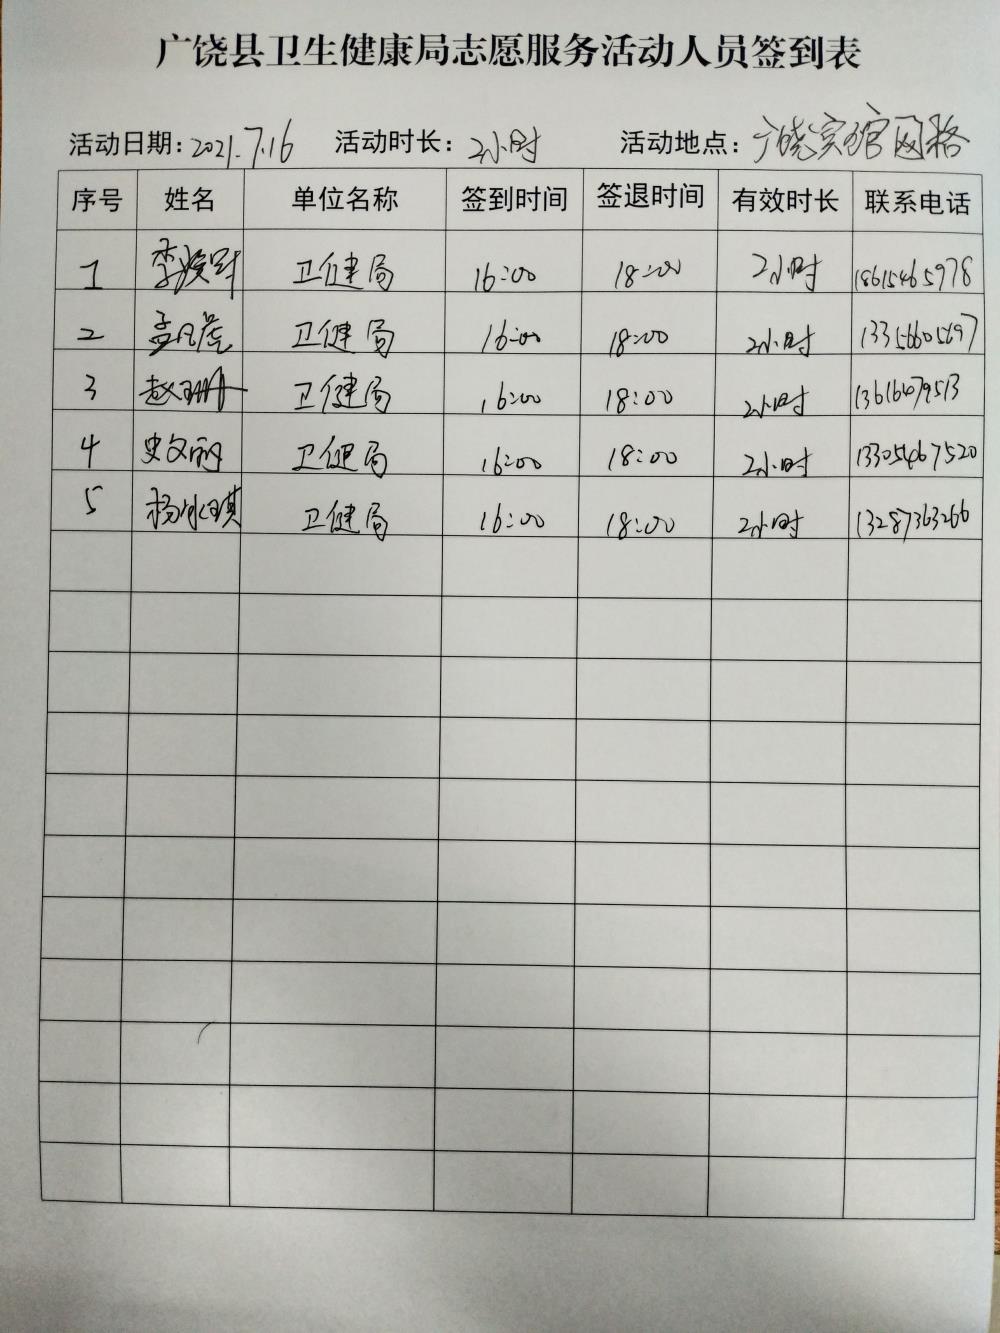 广饶县卫生健康局志愿服务活动人员签到表
活动日期：2021.7.16 活动时长：2小时 活动地点：广饶宾馆网格
序号 姓名 单位名称 签到时间 签退时间 有效时长 联系电话
1 卫健局 16:00 18:00 2小时 18615465978
2 孟凡 卫健局 16:00 18:00 2小时 13356605697
3 赵珊 卫健局 16:00 18:00 2小时
4 史文丽 卫健局 16:00 18:00 2小时 13305467520
5 杨冰琪 卫健局 16:00 18:00 2小时 13287363266